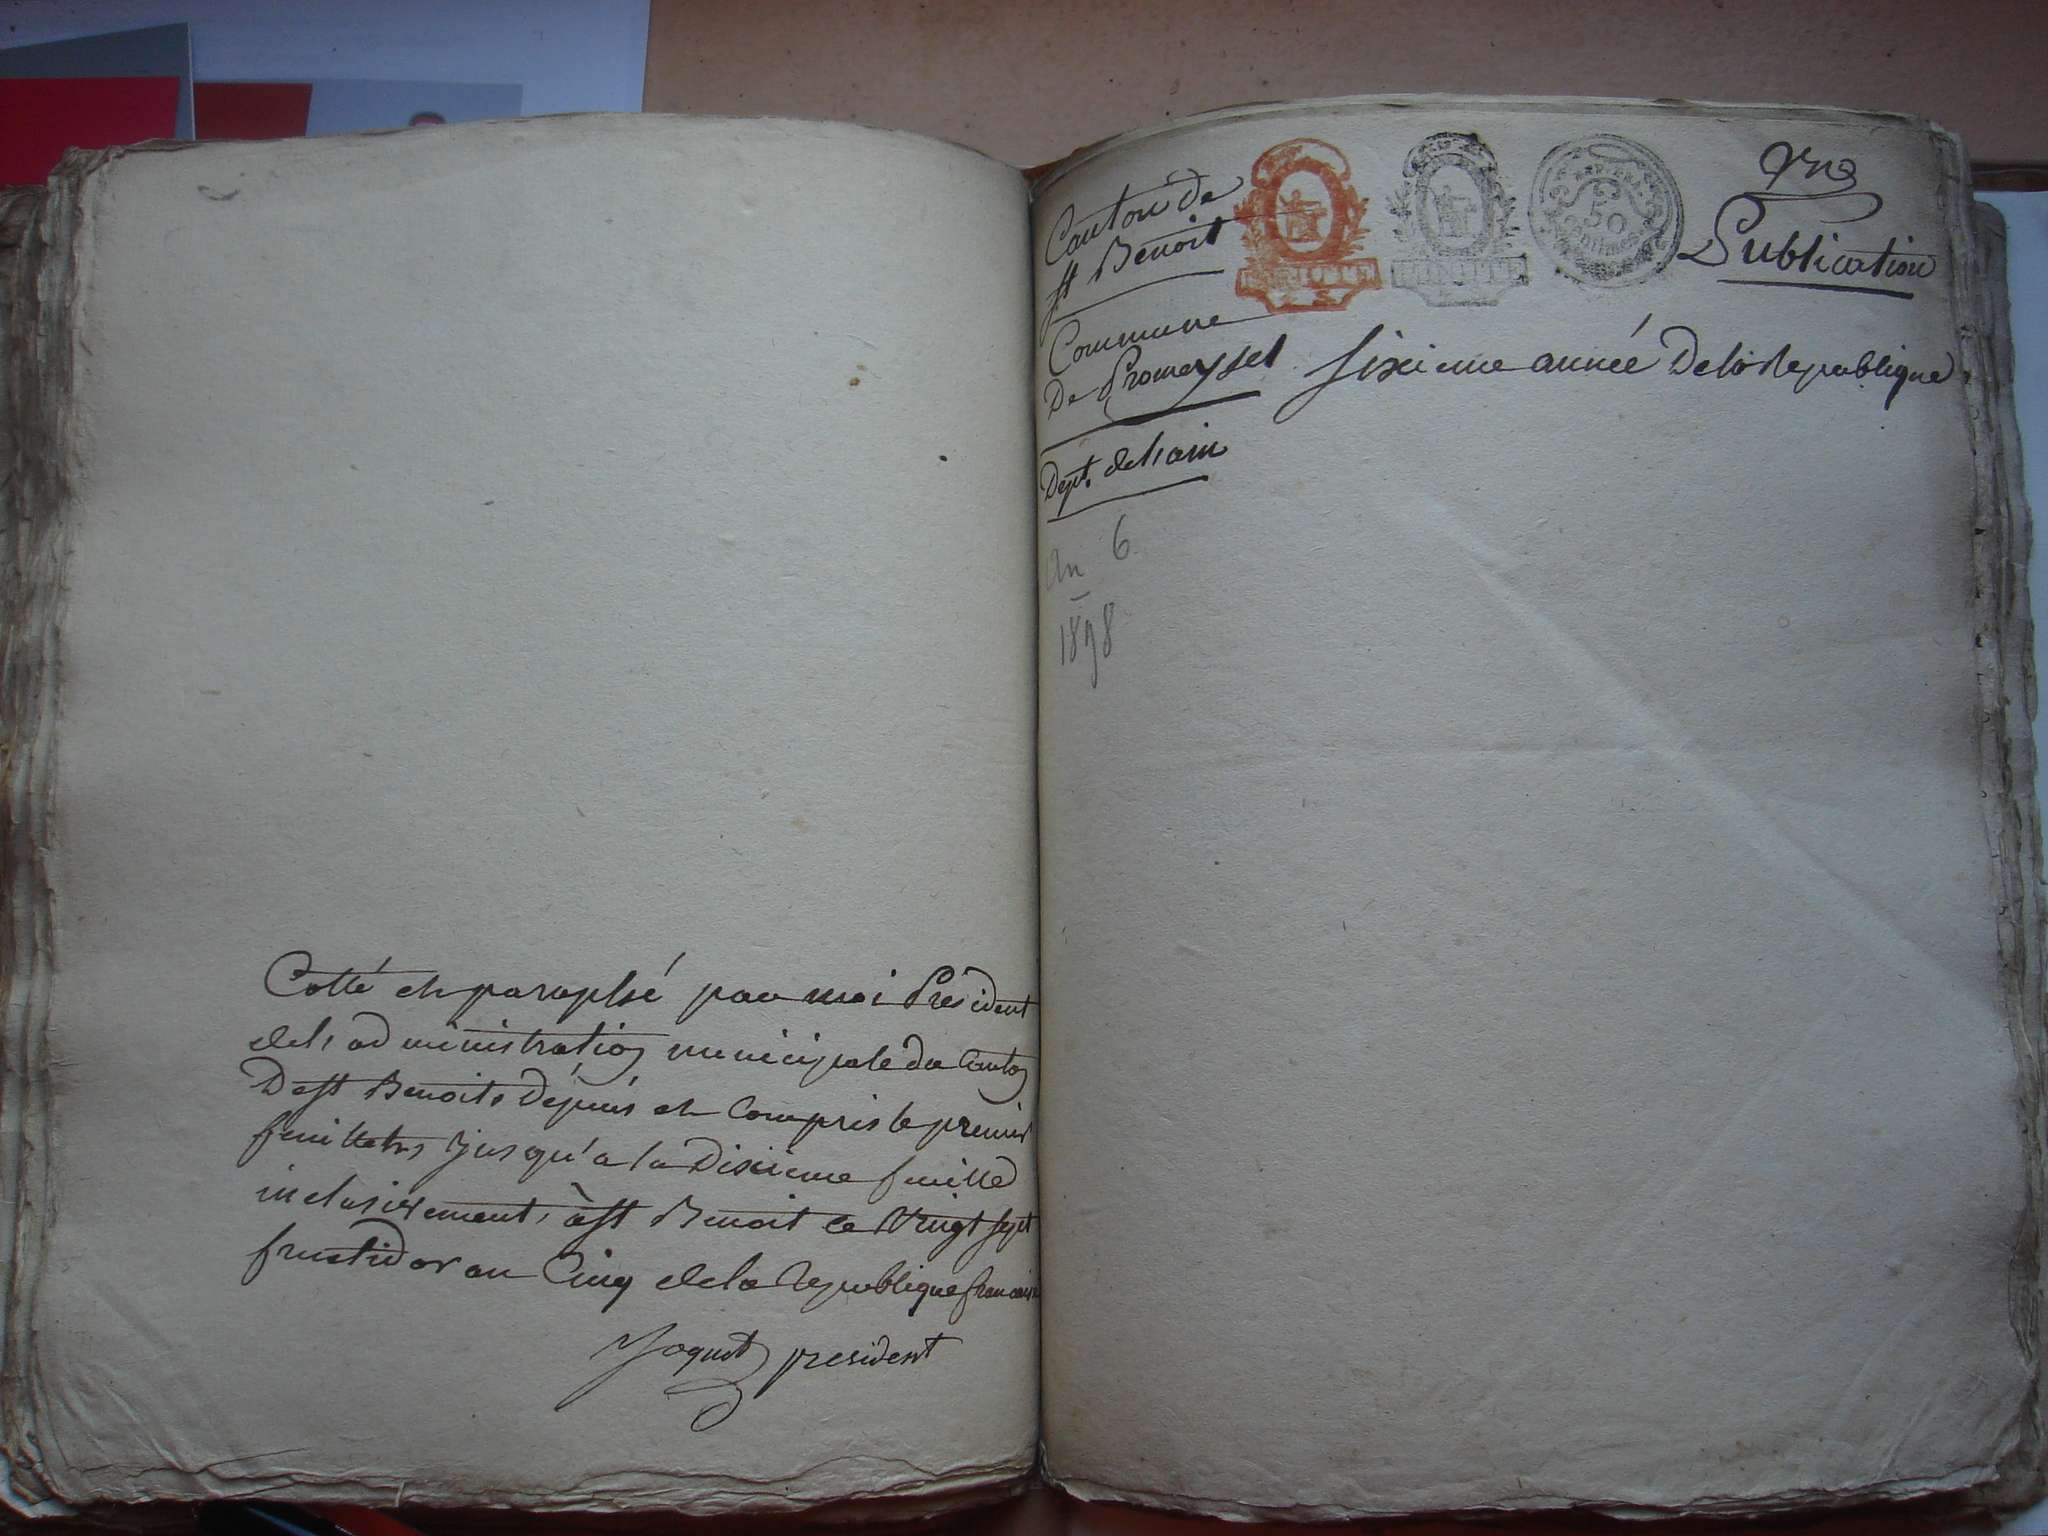 Cotté et paraphé par moi Président
de l'administration municipale du Canton
De st Benoit, Depuis et Compris le premier
feuillet, jusqu'a la Dixieme feuille
inclusivement, à st Benoit ce Vingt sept
fructidor an Cinq de la republique francaise
president
Canton de
st Benoit
Commune
De Promeyssel
Dept. de l'ain
An 6
1898
50
Centimes
Publication
sixieme année De la Republique